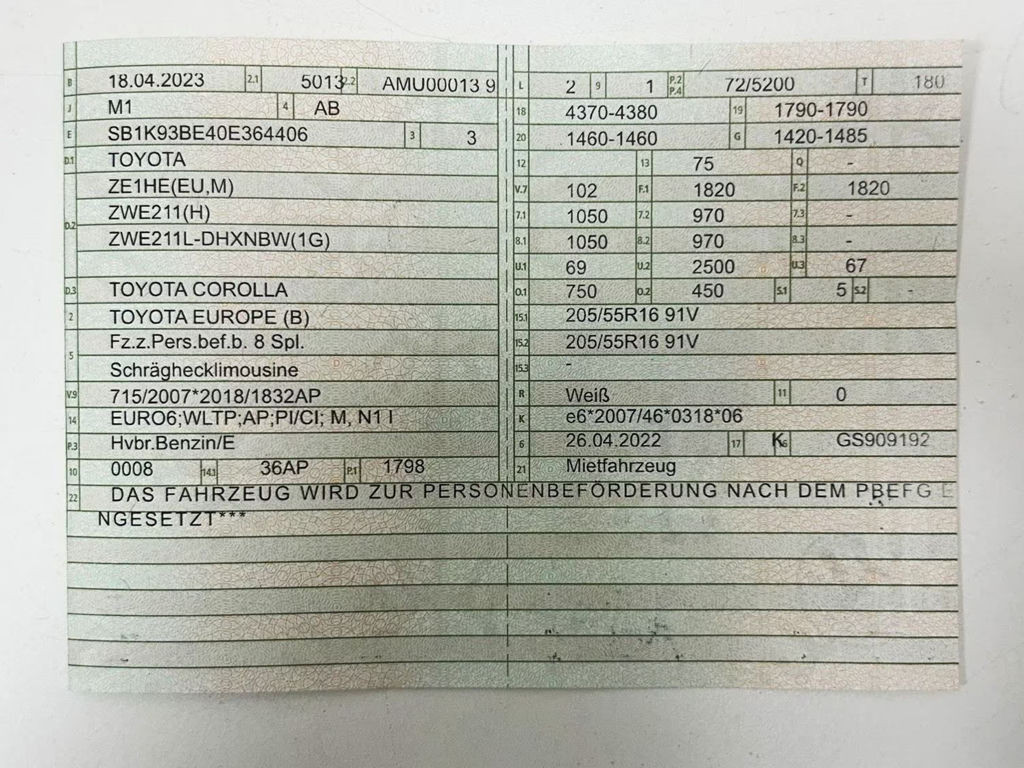 B 18.04.2023 2.1 5013 2.2 AMU00013 9
J M1 4 AB
E SB1K93BE40E364406 3 3
D.1 TOYOTA
ZE1HE(EU,M)
D.2 ZWE211(H)
ZWE211L-DHXNBW(1G)
D.3 TOYOTA COROLLA
2 TOYOTA EUROPE (B)
5 Fz.z.Pers.bef.b. 8 Spl.
Schräghecklimousine
V.9 715/2007*2018/1832AP
14 EURO6;WLTP;AP;PI/CI; M, N1 I
P.3 Hvbr.Benzin/E
10 0008 14.1 36AP P.1 1798
L 2 9 1 P.2 P.4 72/5200 T 180
18 4370-4380 19 1790-1790
20 1460-1460 G 1420-1485
12 13 75 Q -
V.7 102 F.1 1820 F.2 1820
7.1 1050 7.2 970 7.3 -
8.1 1050 8.2 970 8.3 -
U.1 69 U.2 2500 U.3 67
O.1 750 O.2 450 S.1 5 S.2 -
15.1 205/55R16 91V
15.2 205/55R16 91V
15.3 -
R Weiß 11 0
K e6*2007/46*0318*06
6 26.04.2022 17 K 16 GS909192
21 Mietfahrzeug
22 DAS FAHRZEUG WIRD ZUR PERSONENBEFÖRDERUNG NACH DEM PBEFG E
NGESETZT***